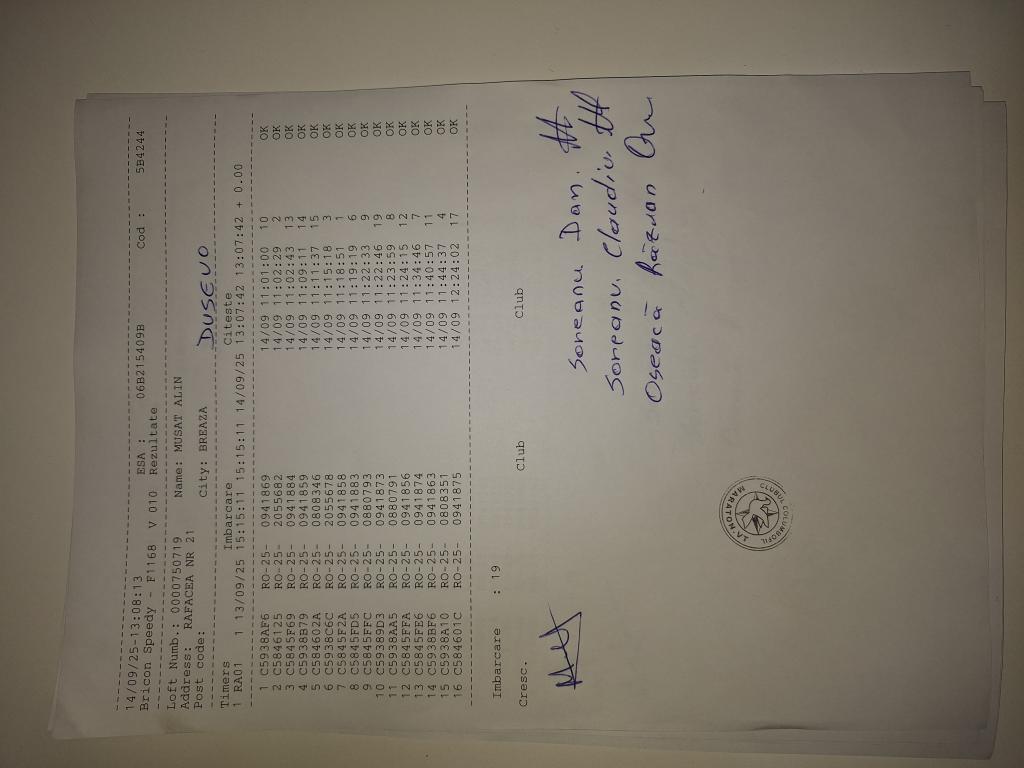 14/09/25-13:08:13 ESA : 06B215409B Cod : 5B4244
Bricon Speedy - F1168 V 010 Rezultate
Loft Numb.: 0000750719 Name: MUSAT ALIN
Address: RAFACEA NR 21
Post code: City: BREAZA DUSEVO
Timers Imbarcare Citeste
1 RA01 1 13/09/25 15:15:11 15:15:11 14/09/25 13:07:42 13:07:42 + 0.00
1 C5938AF6 RO-25- 0941869 14/09 11:01:00 10 OK
2 C5846125 RO-25- 2055682 14/09 11:02:29 2 OK
3 C5845F69 RO-25- 0941884 14/09 11:02:43 13 OK
4 C5938B79 RO-25- 0941859 14/09 11:09:11 14 OK
5 C584602A RO-25- 0808346 14/09 11:11:37 15 OK
6 C5938C6C RO-25- 2055678 14/09 11:15:18 3 OK
7 C5845F2A RO-25- 0941858 14/09 11:18:51 1 OK
8 C5845FD5 RO-25- 0941883 14/09 11:19:19 6 OK
9 C5845FFC RO-25- 0880793 14/09 11:22:33 9 OK
10 C59389D3 RO-25- 0941873 14/09 11:22:46 19 OK
11 C5938AA5 RO-25- 0880791 14/09 11:23:59 8 OK
12 C5845FFA RO-25- 0941856 14/09 11:24:15 12 OK
13 C5845FF6 RO-25- 0941874 14/09 11:34:46 7 OK
14 C5938BF6 RO-25- 0941863 14/09 11:40:57 11 OK
15 C5938A10 RO-25- 0808351 14/09 11:44:37 4 OK
16 C584601C RO-25- 0941875 14/09 12:24:02 17 OK
Imbarcare : 19
Cresc. Club Club
Soneanu Dan.
Soneanu Claudiu
Oseacă Răzvan
CLUBUL COLUMBOFIL
MARATON-VT